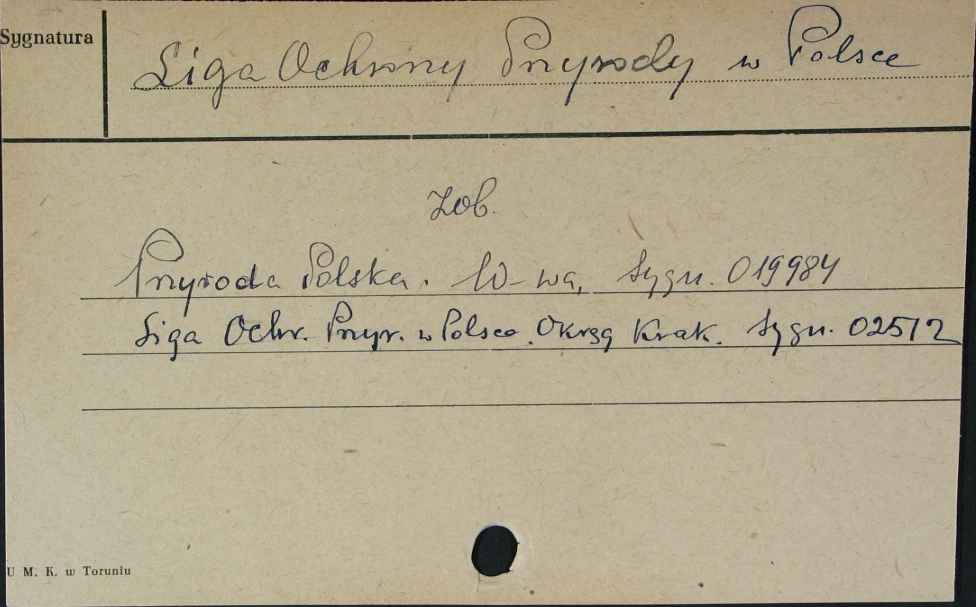 Sygnatura
Liga Ochrony Przyrody w Polsce
Zob.
Przyroda Polska. W-wa, Sygn. 019984
Liga Ochr. Przyr. w Polsce. Okrąg Krak. Sygn. 02512
U M. K. w Toruniu